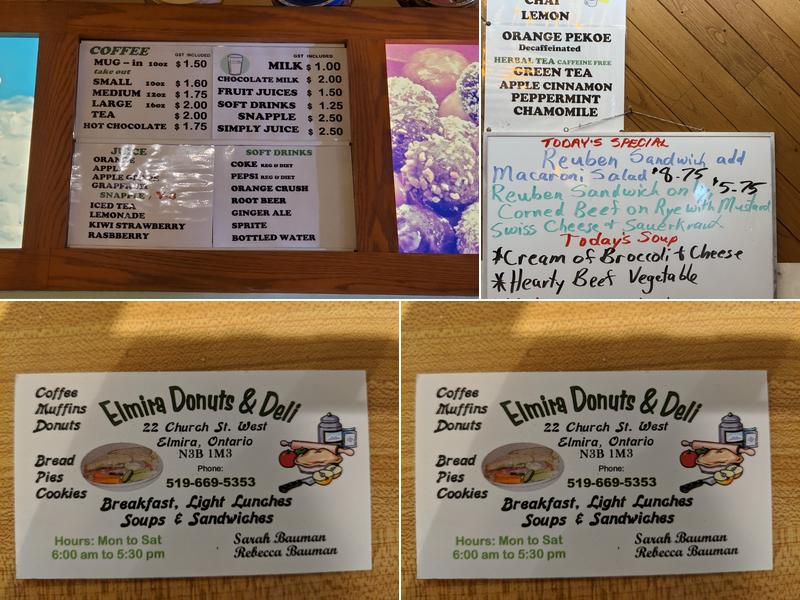 COFFEE
GST INCLUDED
MUG – in 10oz $1.50
take out
SMALL 10oz $1.60
MEDIUM 12oz $1.75
LARGE 16oz $2.00
TEA $2.00
HOT CHOCOLATE $1.75
GST INCLUDED
MILK $1.00
CHOCOLATE MILK $2.00
FRUIT JUICES $1.50
SOFT DRINKS $1.25
SNAPPLE $2.50
SIMPLY JUICE $2.50
JUICE
ORANGE
APPLE
APPLE GRAPE
GRAPFRUIT
SNAPPLE
ICED TEA
LEMONADE
KIWI STRAWBERRY
RASBBERRY
SOFT DRINKS
COKE REG & DIET
PEPSI REG & DIET
ORANGE CRUSH
ROOT BEER
GINGER ALE
SPRITE
BOTTLED WATER
CHAI
LEMON
ORANGE PEKOE
Decaffeinated
HERBAL TEA CAFFEINE FREE
GREEN TEA
APPLE CINNAMON
PEPPERMINT
CHAMOMILE
TODAY'S SPECIAL
Reuben Sandwich add
Macaroni Salad $8.75
Reuben Sandwich on $5.75
Corned Beef on Rye with Mustard
Swiss Cheese + Sauerkraut
Today's Soup
*Cream of Broccoli + Cheese
*Hearty Beef Vegetable
Coffee
Muffins
Donuts
Bread
Pies
Cookies
Elmira Donuts & Deli
22 Church St. West
Elmira, Ontario
N3B 1M3
Phone:
519-669-5353
Breakfast, Light Lunches
Soups & Sandwiches
Hours: Mon to Sat
6:00 am to 5:30 pm
Sarah Bauman
Rebecca Bauman
Coffee
Muffins
Donuts
Bread
Pies
Cookies
Elmira Donuts & Deli
22 Church St. West
Elmira, Ontario
N3B 1M3
Phone:
519-669-5353
Breakfast, Light Lunches
Soups & Sandwiches
Hours: Mon to Sat
6:00 am to 5:30 pm
Sarah Bauman
Rebecca Bauman